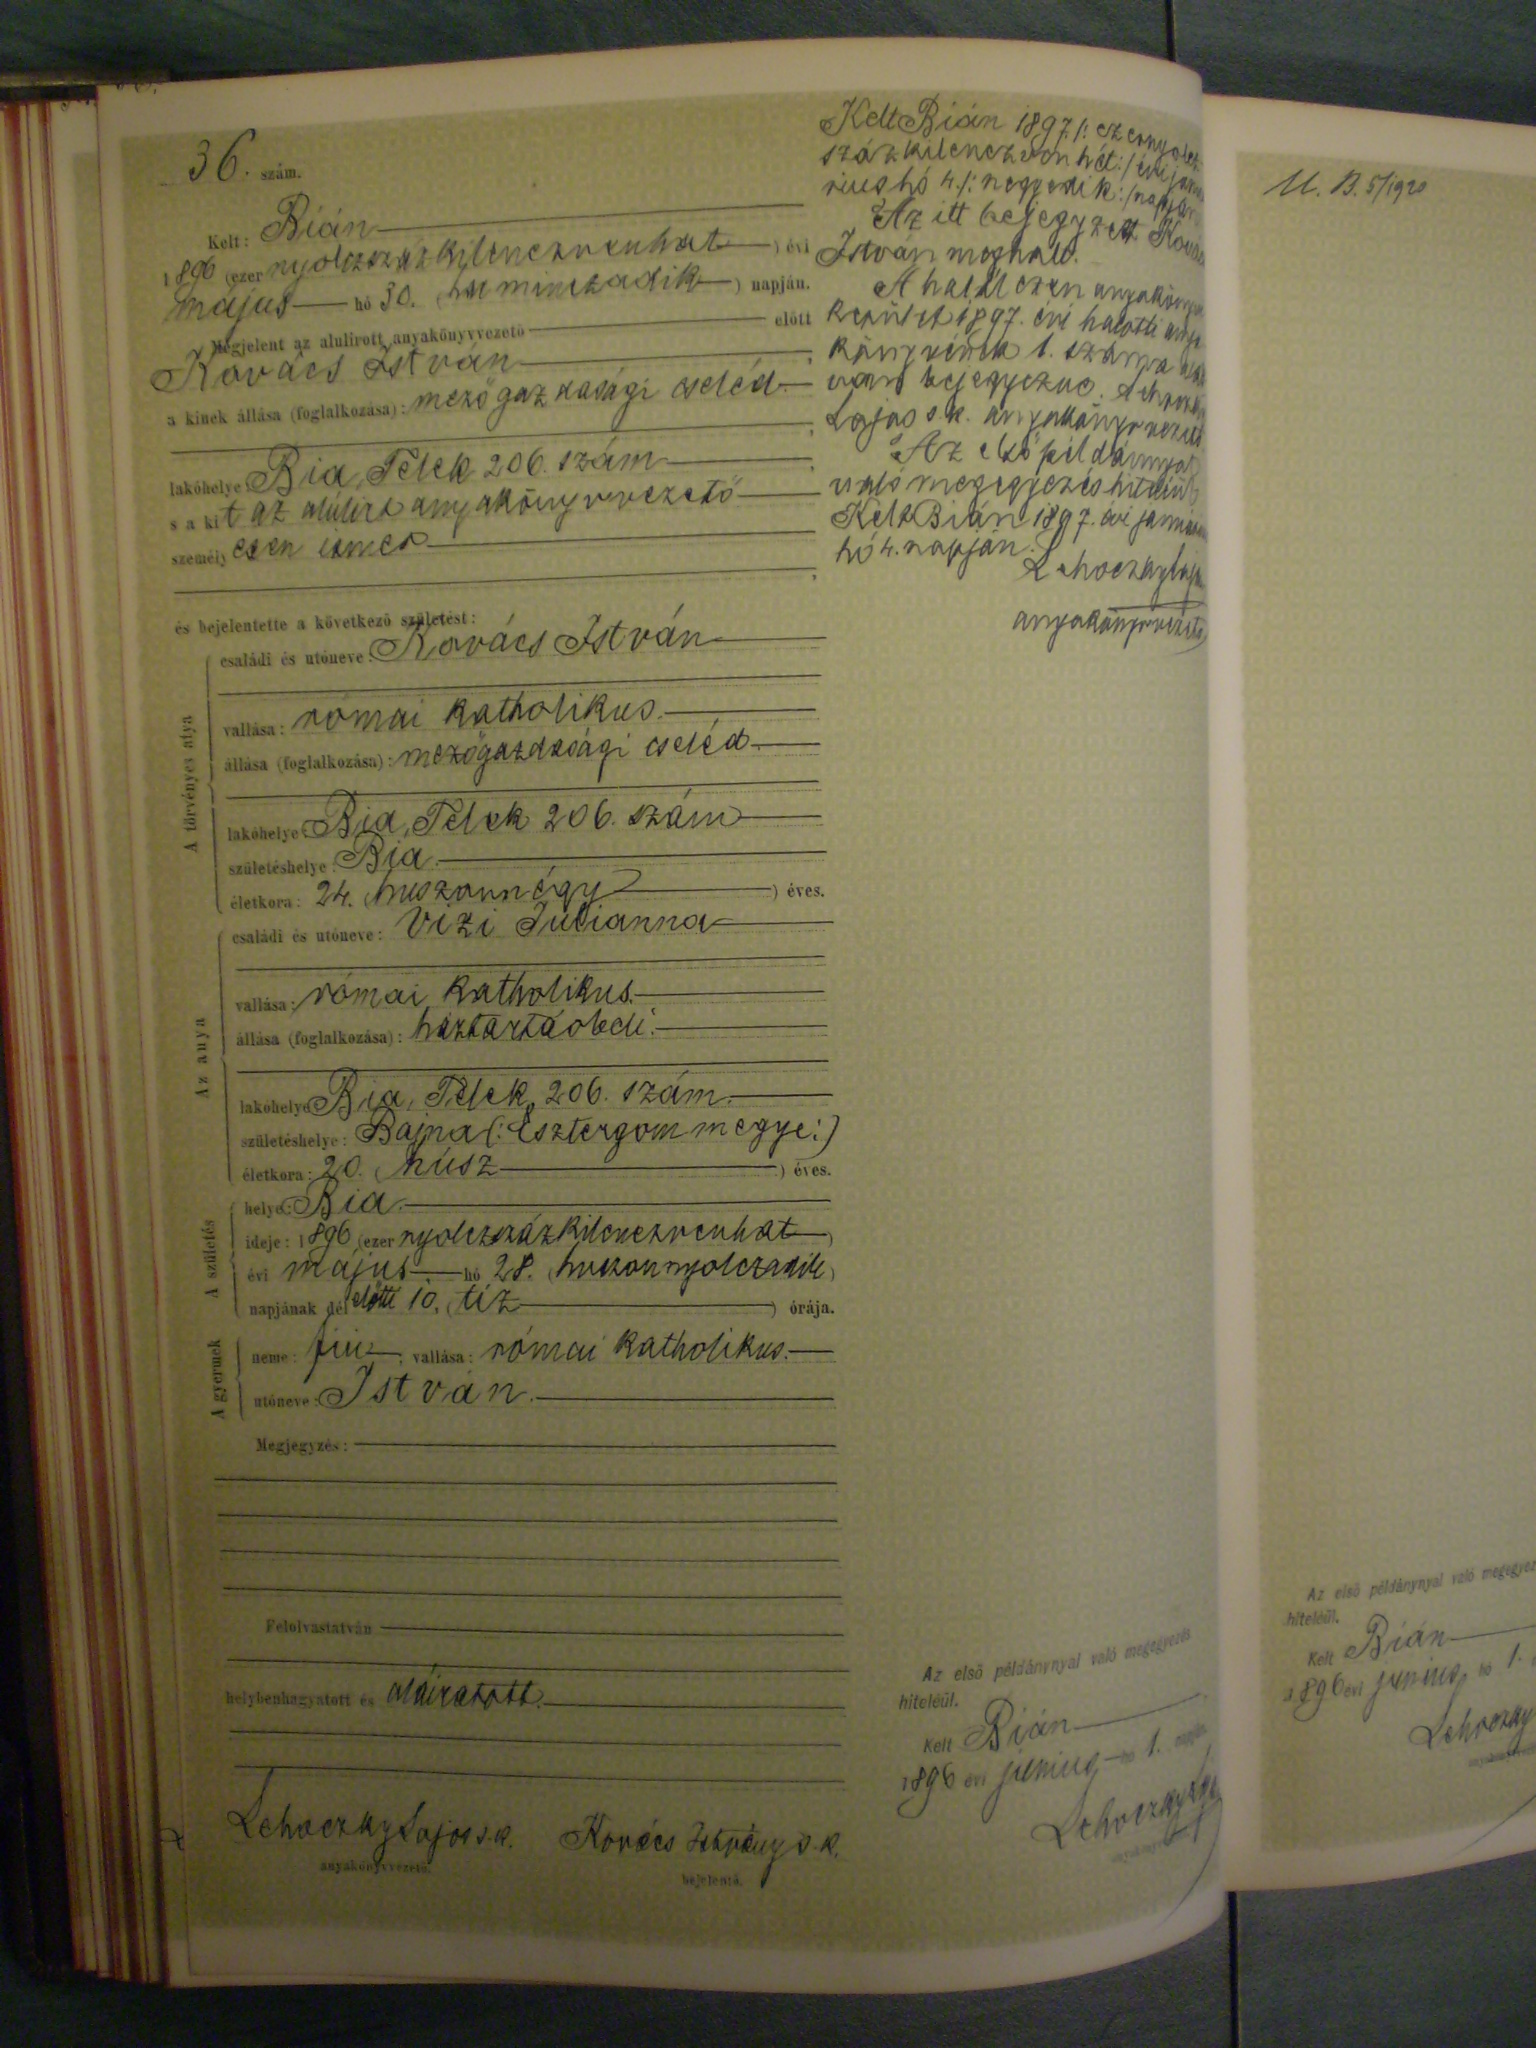 36. szám.
Kelt: Bián
1896 (ezer nyolczszázkilenczvenhat) évi
május hó 30. (harminczadik) napján.
Megjelent az alulirott anyakönyvvezető előtt
Kovács István
a kinek állása (foglalkozása): mezőgazdasági cseléd
lakóhelye: Bia, Telek 206. szám
s a kit az alúlírt anyakönyvvezető
személyesen ismer
és bejelentette a következő születést:
A törvényes atya
családi és utóneve: Kovács István
vallása: római katholikus.
állása (foglalkozása): mezőgazdasági cseléd
lakóhelye: Bia, Telek 206. szám
születéshelye: Bia.
életkora: 24. (huszonnégy) éves.
Az anya
családi és utóneve: Vizi Julianna
vallása: római katholikus.
állása (foglalkozása): háztartásbeli.
lakóhelye: Bia, Telek, 206. szám.
születéshelye: Bajna (: Esztergom megye :)
életkora: 20. (húsz) éves.
A születés
helye: Bia.
ideje: 1896 (ezer nyolczszázkilenczvenhat)
évi május hó 28. (huszonnyolczadik)
napjának dél előtti 10. (tíz) órája.
A gyermek
neme: fiu; vallása: római katholikus.
utóneve: István.
Megjegyzés:
Felolvastatván
helybenhagyatott és aláiratott.
Lehoczky Lajos s.k. Kovács István s.k.
anyakönyvvezető. bejelentő.
Kelt Bián 1897 /: ezernyolcz
százkilenczvenhét :/ évi janu
árius hó 4. /: negyedik :/ napján
Az itt bejegyzett Kovács
István meghalt.
A halál ezen anyakönyvi
kerület 1897. évi halotti anya
könyvének 1. száma alatt
van bejegyezve. Lehoczky
Lajos s.k. anyakönyvvezető
Az első példánnyal
való megegyezés hiteléül
Kelt Bián 1897. évi január
hó 4. napján.
Lehoczky Lajos
anyakönyvvezető
Az első példánynyal való megegyezés
hiteléül.
Kelt Bián
1896 évi junius hó 1. napján.
Lehoczky Lajos
M. B. 5/1920
Az első példánynyal való megegyez
hiteléül.
Kelt Bián
1896 évi junius hó 1.
Lehoczky